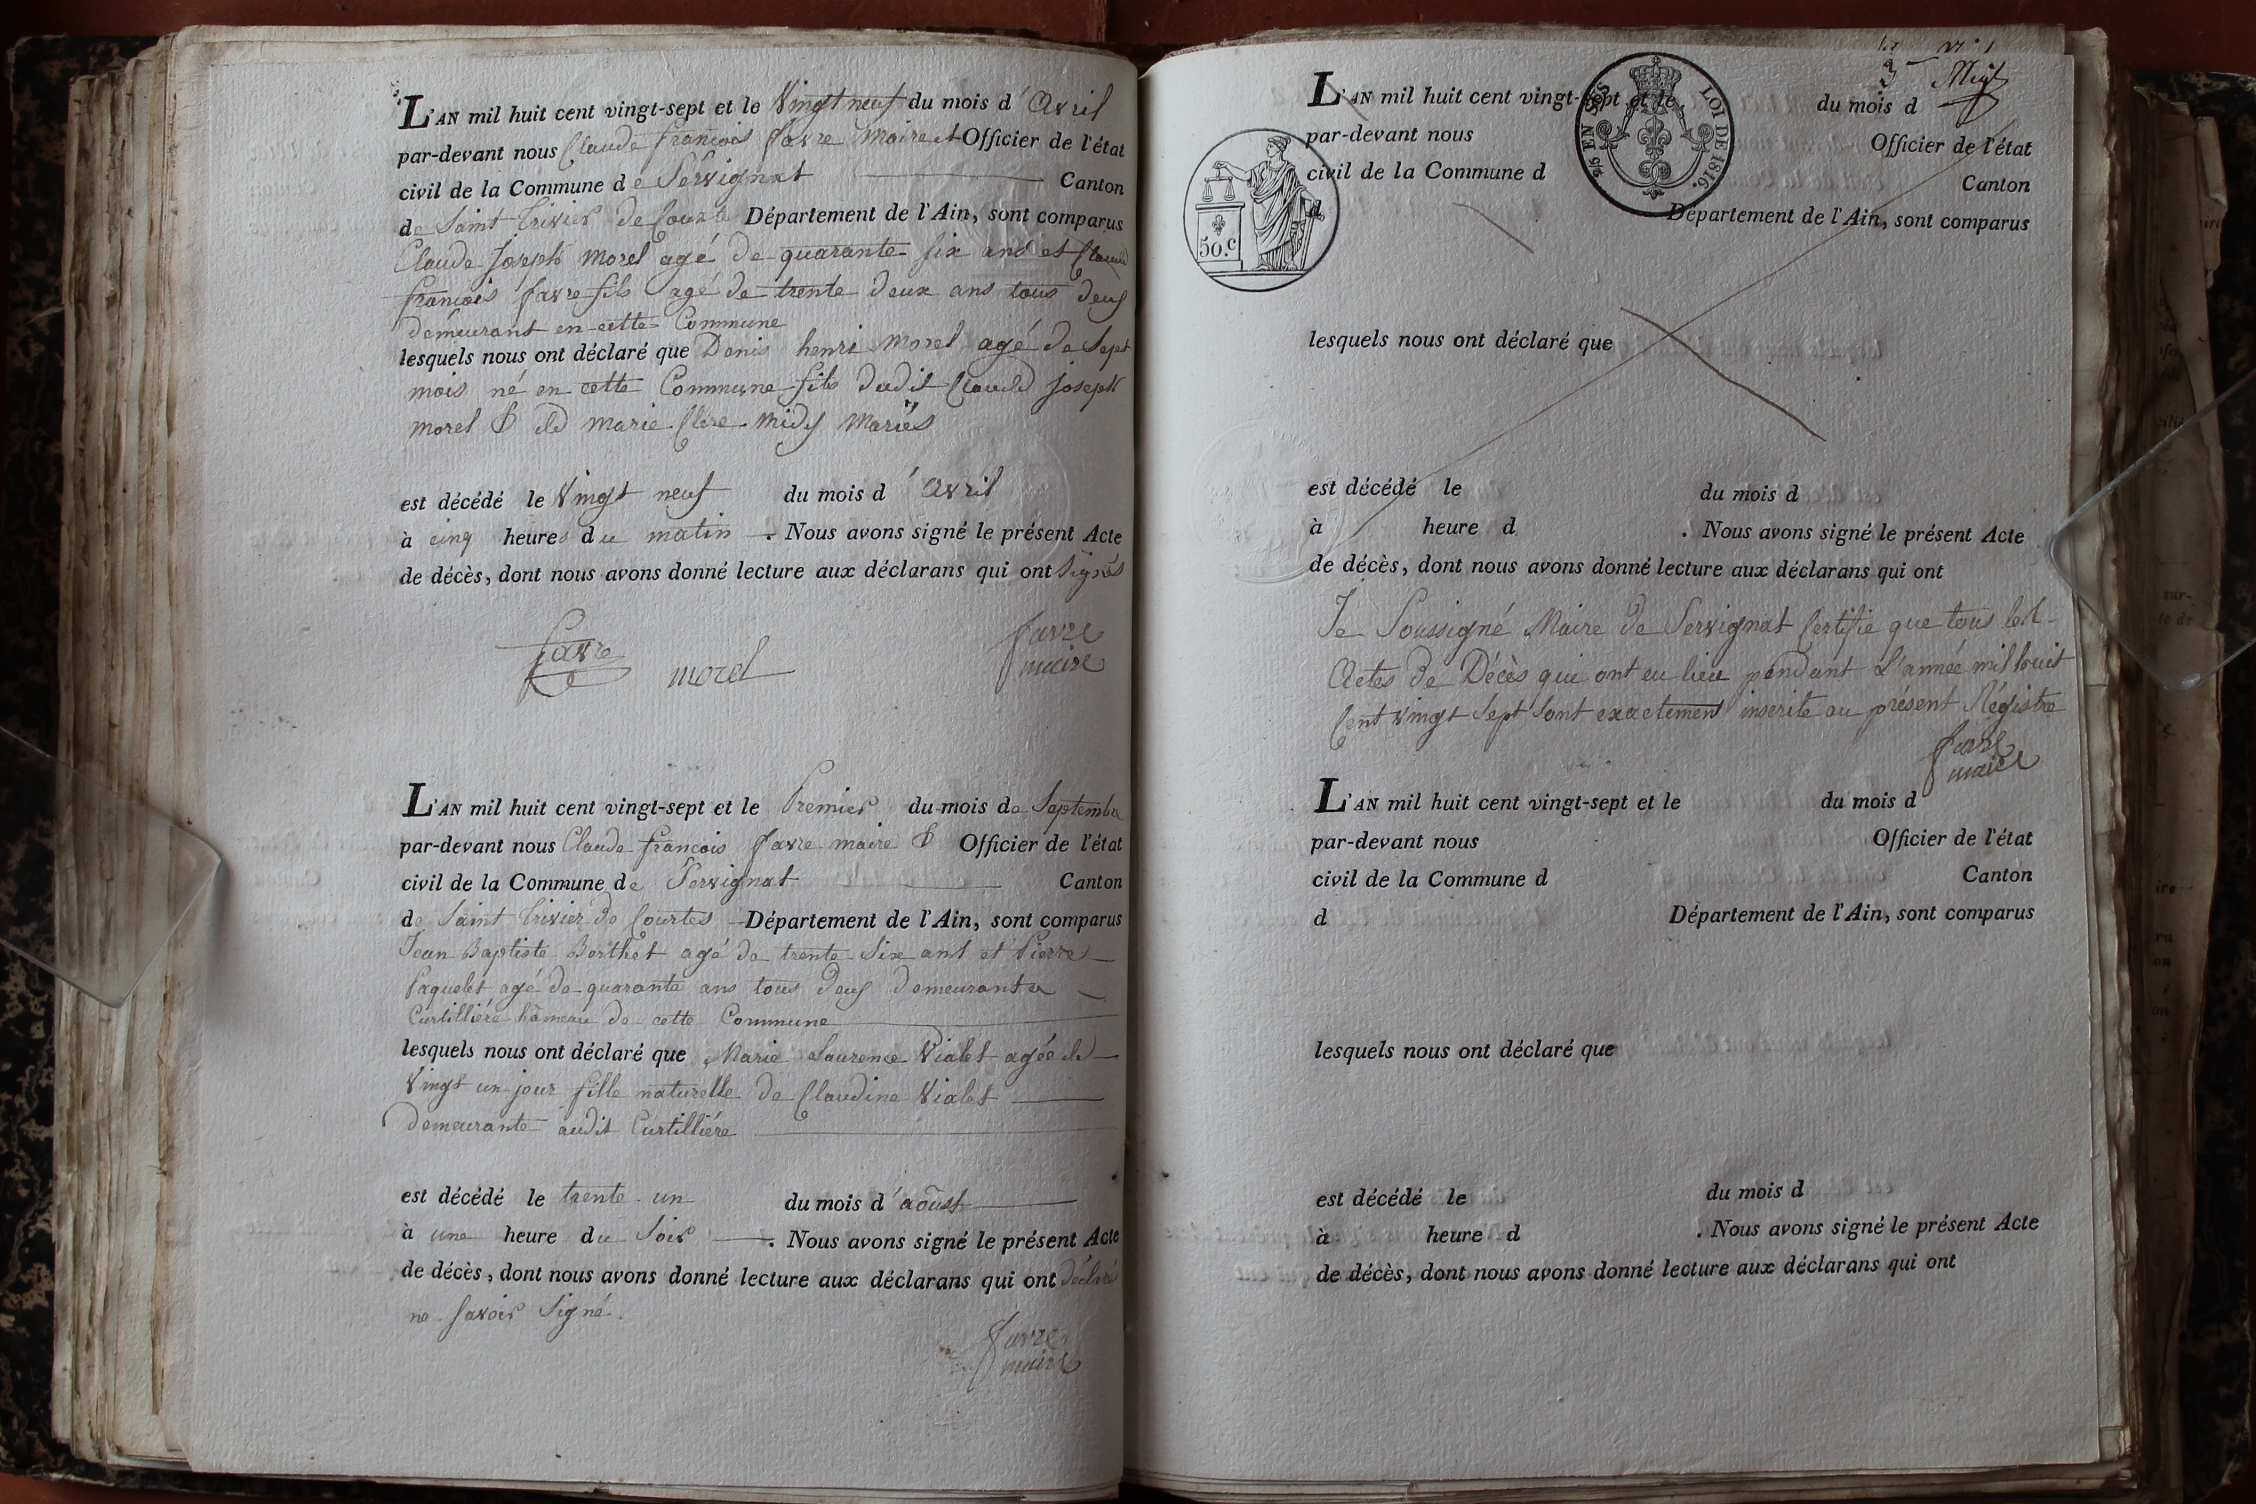 L'AN mil huit cent vingt-sept et le Vingt neuf du mois d'Avril
par-devant nous Claude françois favre maire et Officier de l'état
civil de la Commune de Servignat Canton
de Saint Trivier de Courte Département de l'Ain, sont comparus
Claude Joseph Morel agé de quarante six ans et Claude
françois favre fils agé de trente deux ans tous deux
demeurant en cette Commune
lesquels nous ont déclaré que Denis henri Morel agé de Sept
mois né en cette Commune fils dudit Claude joseph
morel & de marie Clere midy Mariés
est décédé le Vingt neuf du mois d'Avril
à cinq heures du matin . Nous avons signé le présent Acte
de décès, dont nous avons donné lecture aux déclarans qui ont Signés
favre
morel
favre
maire
L'AN mil huit cent vingt-sept et le Premier du mois de Septembre
par-devant nous Claude françois favre maire & Officier de l'état
civil de la Commune de Servignat Canton
de Saint Trivier de Courtes Département de l'Ain, sont comparus
Jean Baptiste Berthet agé de trente Six ans et Pierre
Paquelet agé de quarante ans tous deux demeurant a
Curtillière hâmeau de cette Commune
lesquels nous ont déclaré que Marie Laurence Vialet agée de
Vingt un jour fille naturelle de Claudine Vialet
Demeurante audit Curtillière
est décédé le trente un du mois d'aoûst
à une heure du Soir . Nous avons signé le présent Acte
de décès, dont nous avons donné lecture aux déclarans qui ont déclaré
ne Savoir Signé.
favre
maire
L'AN mil huit cent vingt-sept et le du mois d
par-devant nous Officier de l'état
civil de la Commune d Canton
d Département de l'Ain, sont comparus
EN SUS
LOI DE 1816.
50.C
lesquels nous ont déclaré que
est décédé le du mois d
à heure d . Nous avons signé le présent Acte
de décès, dont nous avons donné lecture aux déclarans qui ont
Je Soussigné Maire de Servignat Certifie que tous les
Actes de Décès qui ont eu lieu pendant L'année mil huit
Cent vingt Sept Sont exactement inscrite au présent Régistre
favre
maire
L'AN mil huit cent vingt-sept et le du mois d
par-devant nous Officier de l'état
civil de la Commune d Canton
d Département de l'Ain, sont comparus
lesquels nous ont déclaré que
est décédé le du mois d
à heure d . Nous avons signé le présent Acte
de décès, dont nous avons donné lecture aux déclarans qui ont